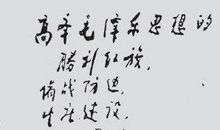 高举毛泽东思想的
胜利红旗，
备战防边，
生产建设，